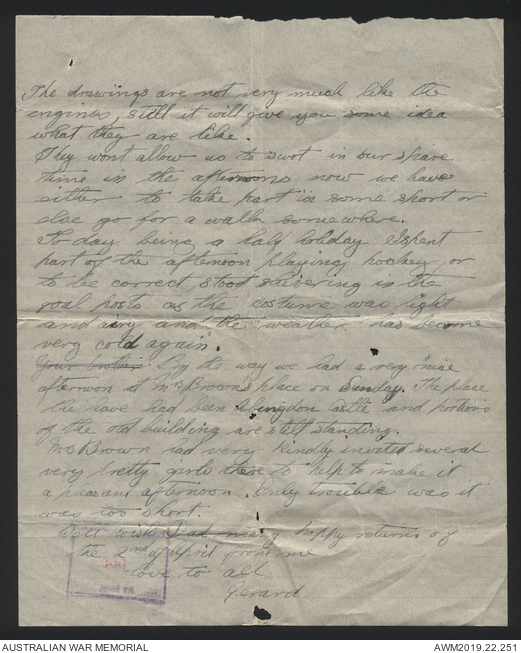 The drawings are not very much like the
engines, still it will give you some idea
what they are like.
They wont allow us to swot in our spare
time in the afternoons now we have
either to take part in some sport or
else go for a walk somewhere.
To day being a half holiday I spent
part of the afternoon playing hockey, or
to be correct, stood shivering in the
goal posts as the costume was light
and airy and the weather has become
very cold again.
Your brother By the way we had a very nice
afternoon at Mrs Browns place on Sunday. The place
the have had been Abingdon and portions
of the old building are still standing.
Mrs Brown had very kindly invited several
very pretty girls there to help to make it
a pleasant afternoon. Only trouble was it
was too short.
wish Dad many happy returns of
the 2nd of April from me
love to all
Gerard
AUSTRALIAN WAR MEMORIAL
AWM2019.22.251